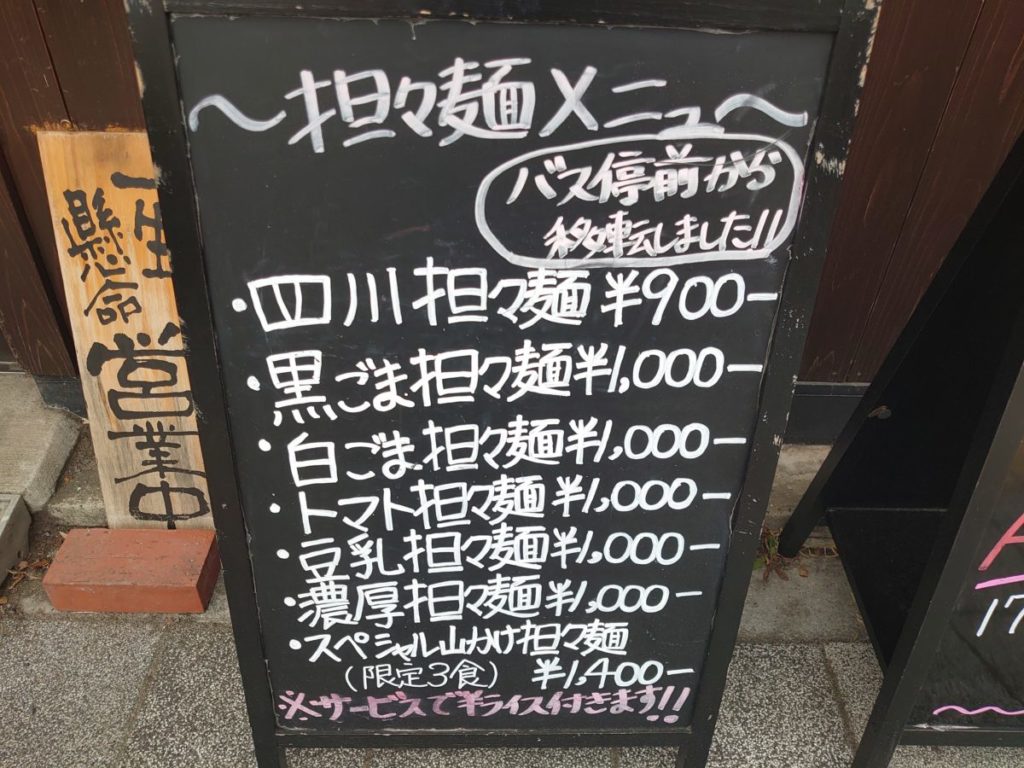 〜担々麺メニュー〜
バス停前から
移転しました!!
・四川担々麺 ¥900-
・黒ごま担々麺 ¥1,000-
・白ごま担々麺 ¥1,000-
・トマト担々麺 ¥1,000-
・豆乳担々麺 ¥1,000-
・濃厚担々麺 ¥1,000-
・スペシャル山かけ担々麺
(限定3食) ¥1,400-
※サービスで半ライス付きます!!
一生
懸命
営業中
17